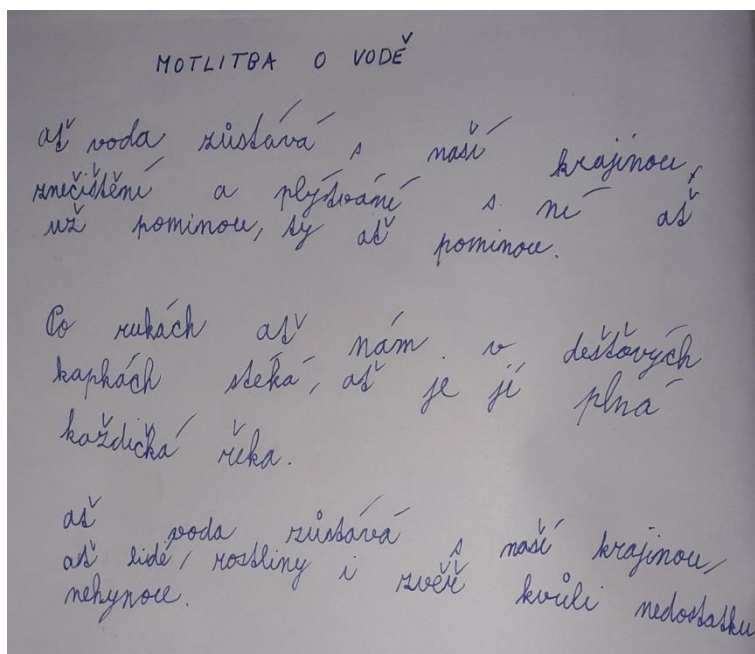 MOTLITBA O VODĚ
ať voda zůstává s naší krajinou,
znečištění a plýtvání s ní ať
už pominou, ty ať pominou.
Po rukách ať nám v dešťových
kapkách stéká, ať je jí plná
každičká řeka.
ať voda zůstává s naší krajinou,
ať lidé, rostliny i zvěř kvůli nedostatku
nehynou.